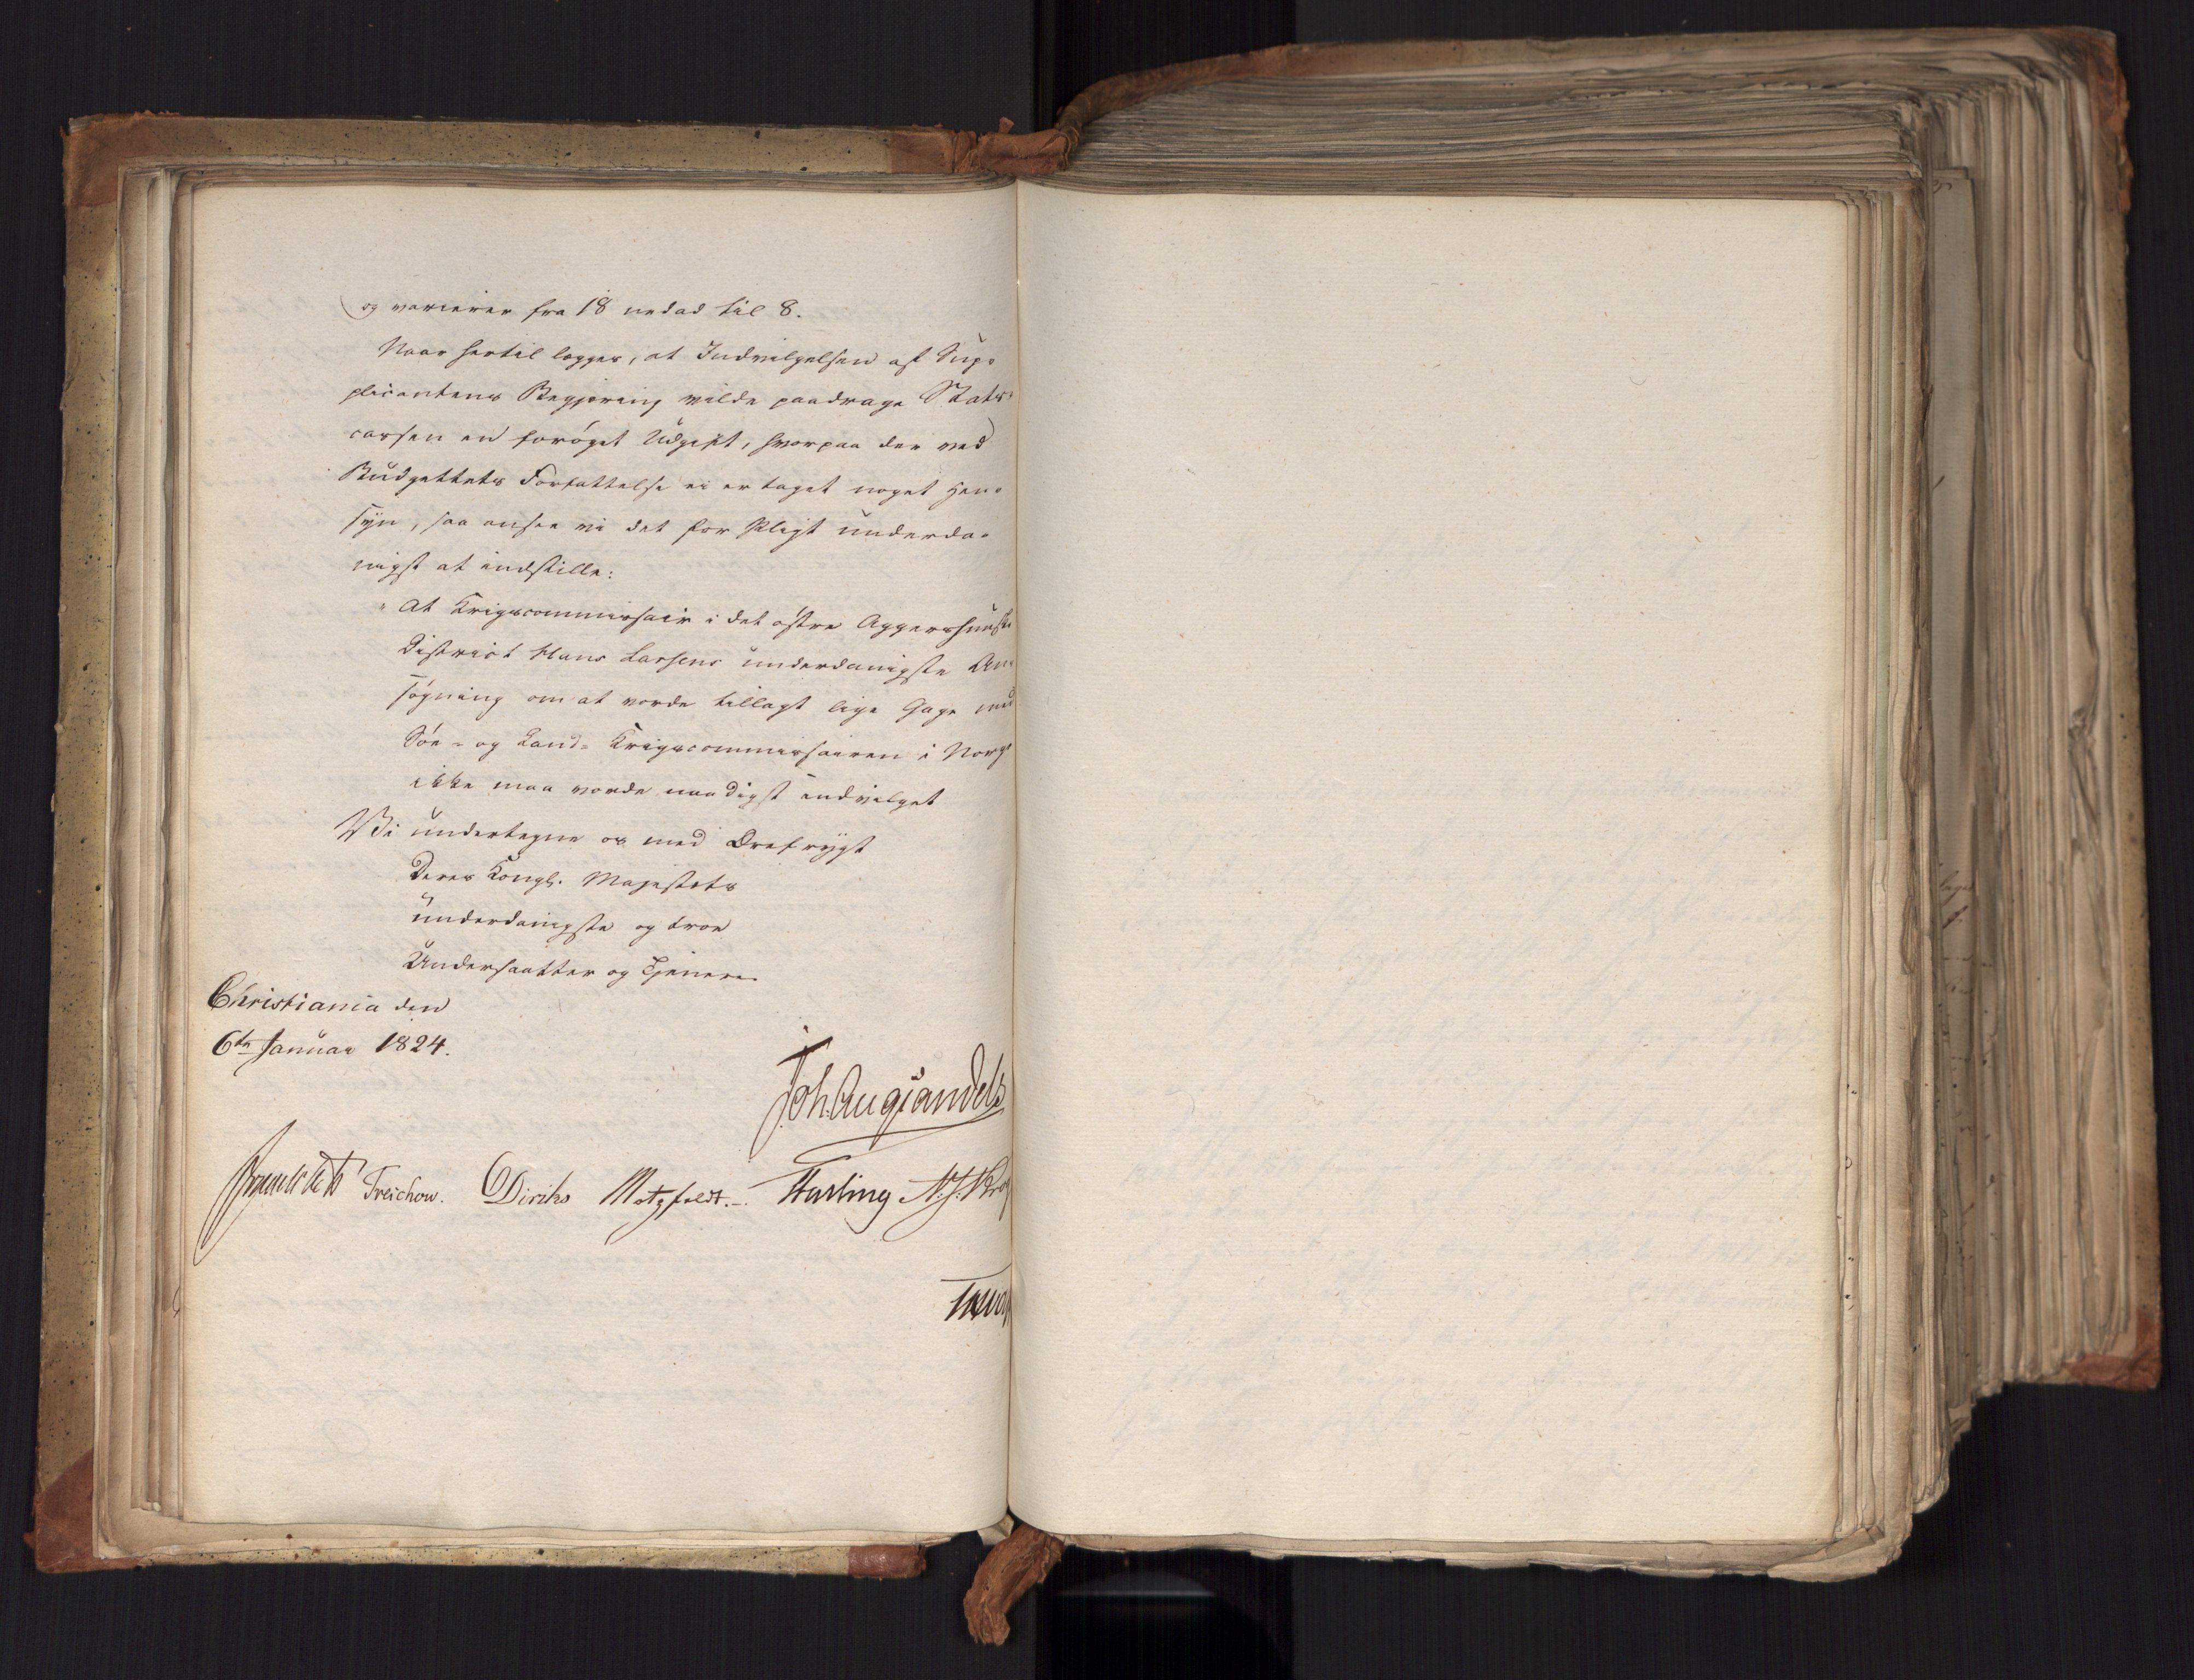 og varierer fra 18 nedad til 8.
Naar hertil lægges, at Indvilgelsen af Sup-
plicantens Begjæring vilde paadrage Stats-
cassen en forøget Udgift, hvorpaa der ved
Budgettets Forfattelse ei er taget noget Hen-
syn, saa ansee vi det for Pligt underda-
nigst at indstille:
"At Krigscommissair i det østre Aggershuuske
District Hans Larsens underdanigste An-
søgning om at vorde tillagt lige Gage med
Søe- og Land-Krigscommissairen i Norge
ikke maa vorde naadigst indvilget
Vi undertegne os med Ærefrygt
Deres Kongl. Majestæts
underdanigste og troe
Undersaatter og Tjenere.
Christiania den
6te Januar 1824.
Joh. Aug Sandels
Treschow. Diriks Motzfeldt. Fasting N. J. Krog